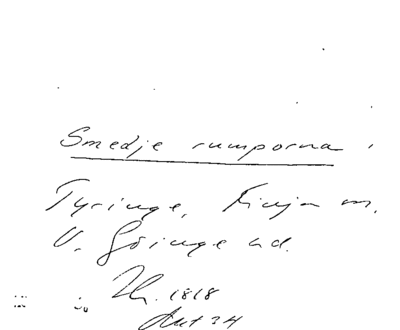 Smedje rumporna i
Tyringe, Finja m.
V. Göinge hd.
1818
34